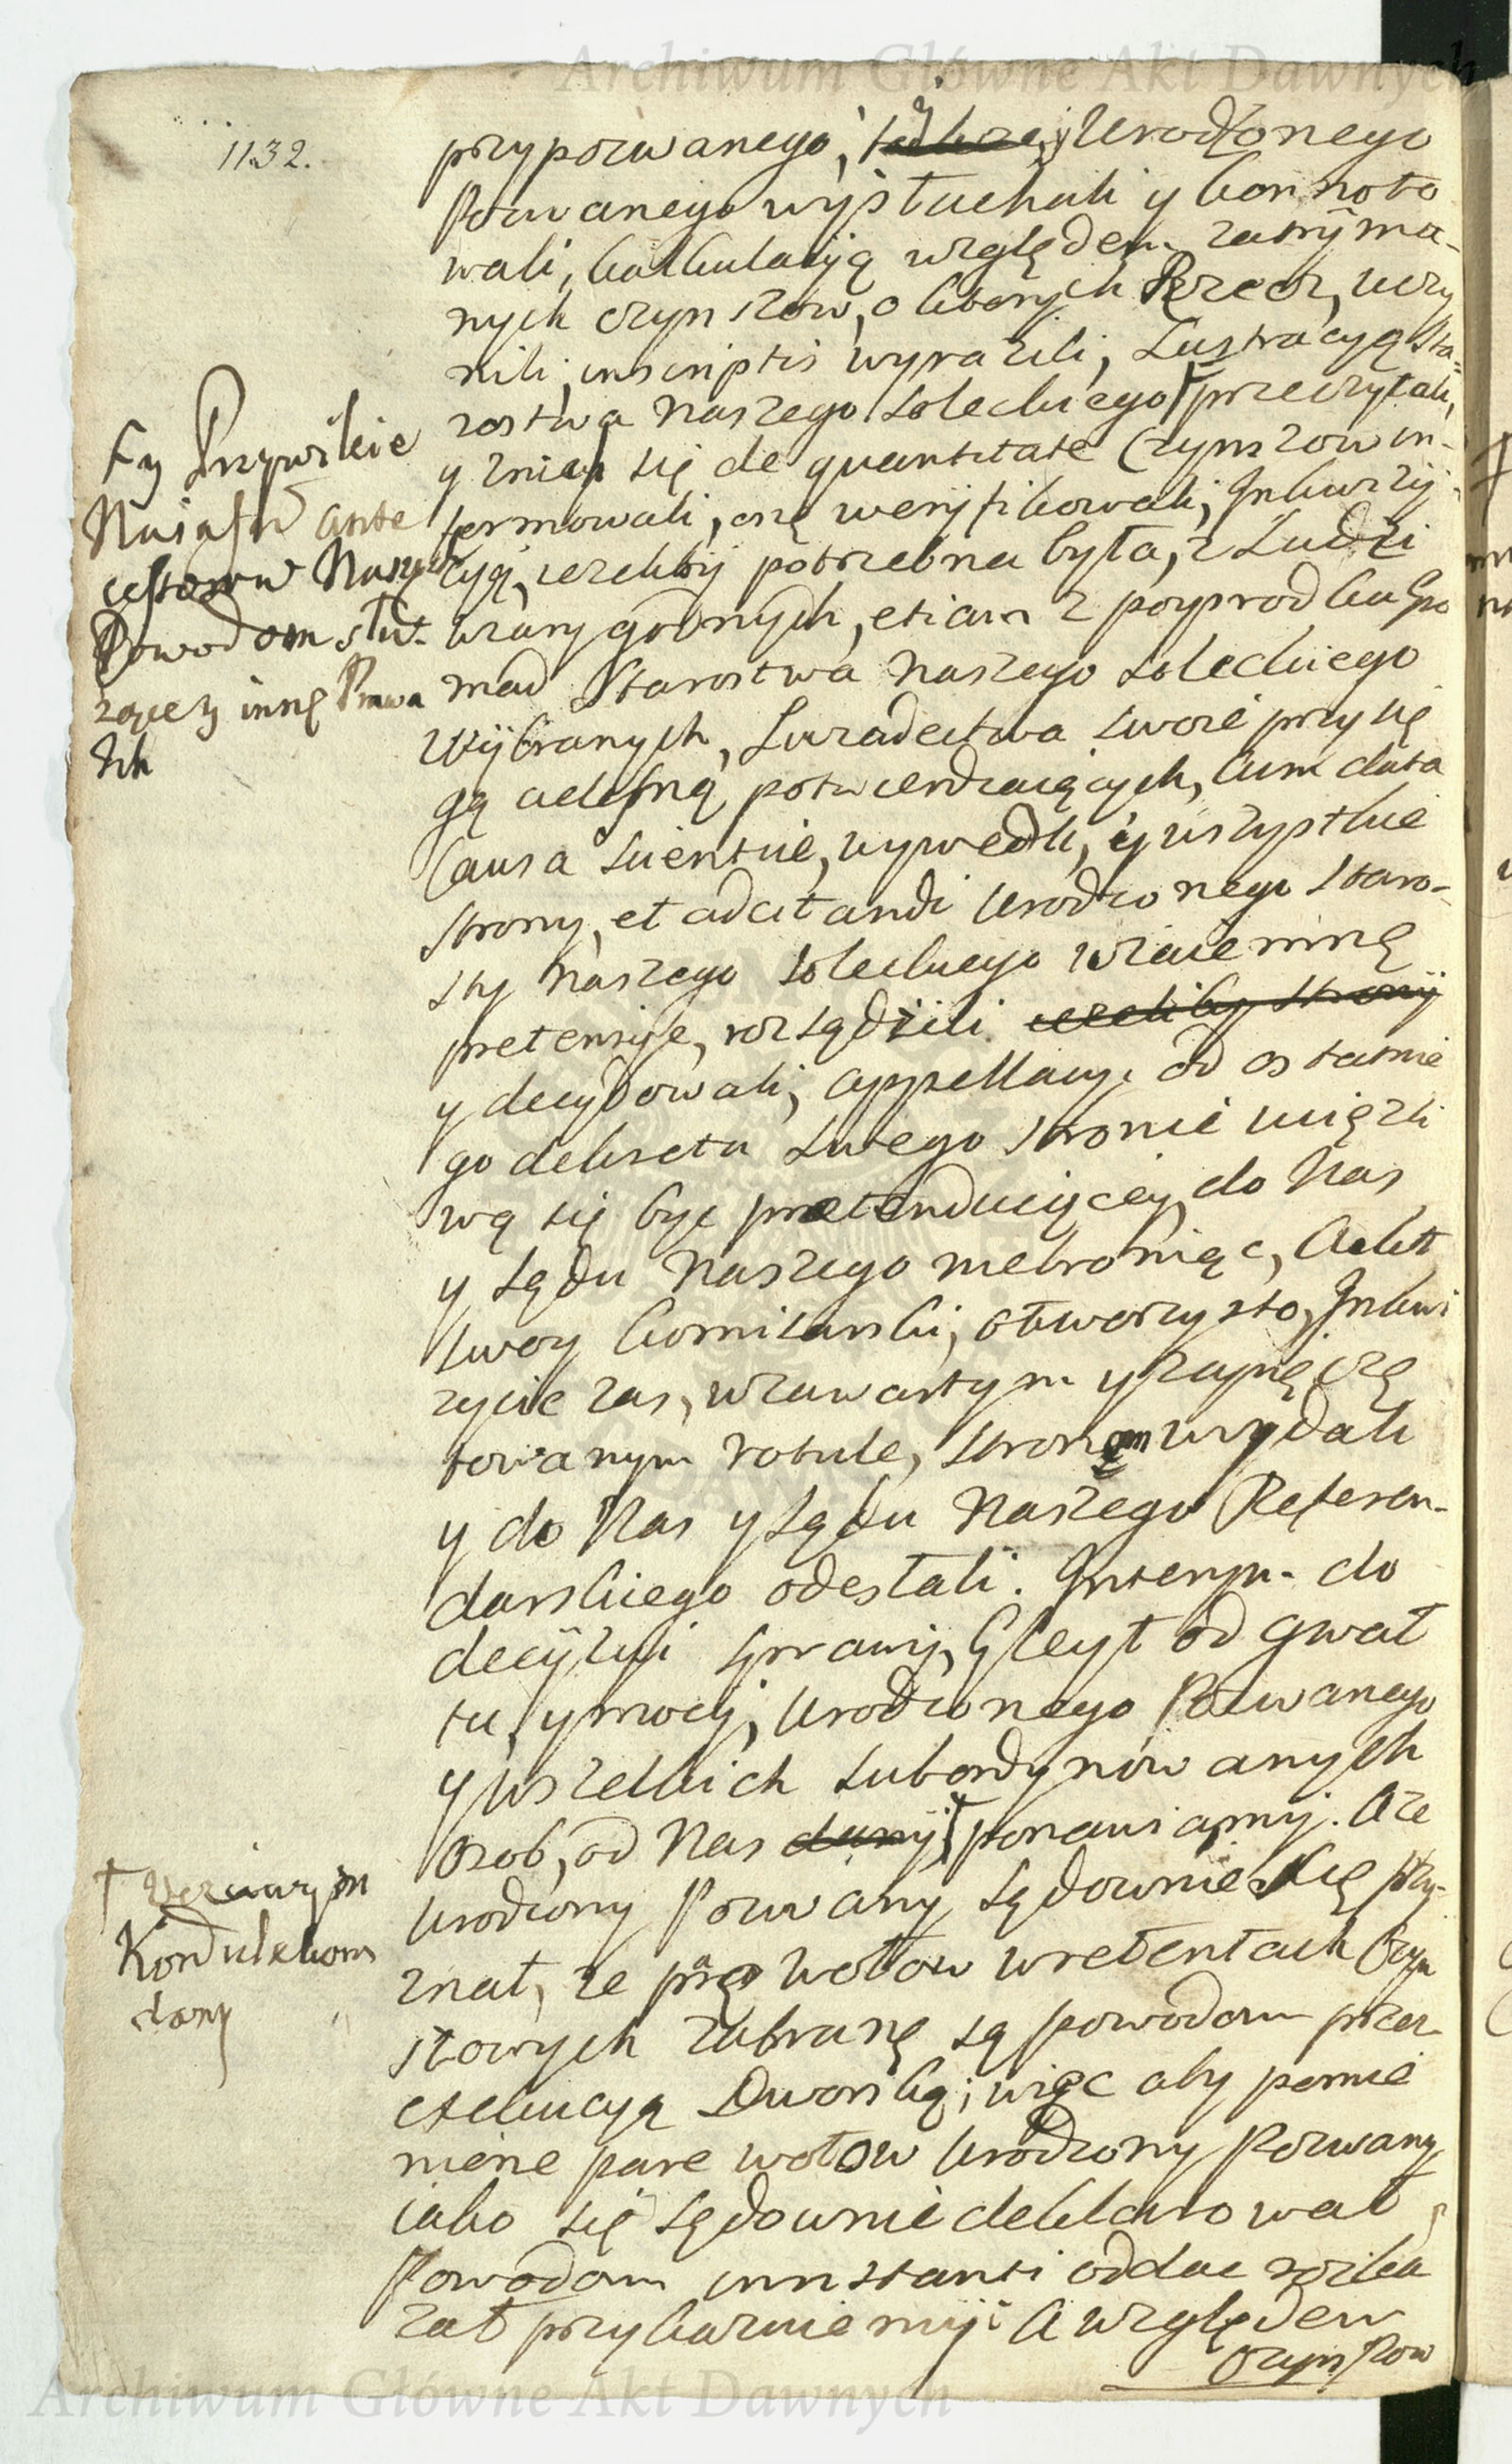 Archiwum Główne Akt Dawnych
1132.
przypozwanego, y Urodzonego
Pozwanego wysłuchali y konnoto
wali, kalkulacyą względem zatrzyma-
nych czynszow, o ktorych Rzecz, uczy
nili, inscriptis wyrazili, Lustracyą Sta-
rostwa Naszego Soleckiego † przeczytali,
y zniey się de quantitate Czynszow in-
formowali, onę weryfikowali, Inkwizy-
cyą, ieżeliby potrzebna była, z Ludzi
wiary godnych, etiam z pośrodka Gro
mad Starostwa Naszego Soleckiego
Wybranych, Swiadectwa swoie przysię
gą cielesną potwierdzaiących, cum data
Causa Scientiae, wywiedli, y wszystkie
Strony, et adcitandi Urodzonego Staro-
sty Naszego Soleckiego wzaiemnę
pretensye, rozsądzili ieżeliby strony
y decydowali, appellacyi od ostatnie
go dekretu Swego Stronie uciązli
wą się byc praetenduiącey do Nas
y Sądu Naszego niebroniąc, Dekret
Swoy kommissarski, otworzysto, Inkwi
zycie zas, w zawartym y zapieczę
towanym rotule, stronom wydali
y do Nas y Sądu Naszego Referen-
darskiego odesłali. Interym do
decyzyi Sprawy, Gleyt od gwał
tu, y mocy, Urodzonego Pozwanego
y wszelkich Subordynowanych
Osob, od Nas dany † ponawiamy. A że
Urodzony Pozwany sądownie się przy-
znał, że parę wołow w retentach Czyn
szowych zabranę są powodom przez
exekucyą Dworską; więc aby pomie
nione pare wołow Urodzony Pozwany
iako się sądownie deklarował,
Powodom in instanti oddac rozka
zał przykazuiemy. A względem
Czynszow
† y Przywileie
Naiasn Ante
cessorow Naszych
Powodom słu-
zące y innę Prawa
Ich
† w
Konduktem
dany
Archiwum Główne Akt Dawnych